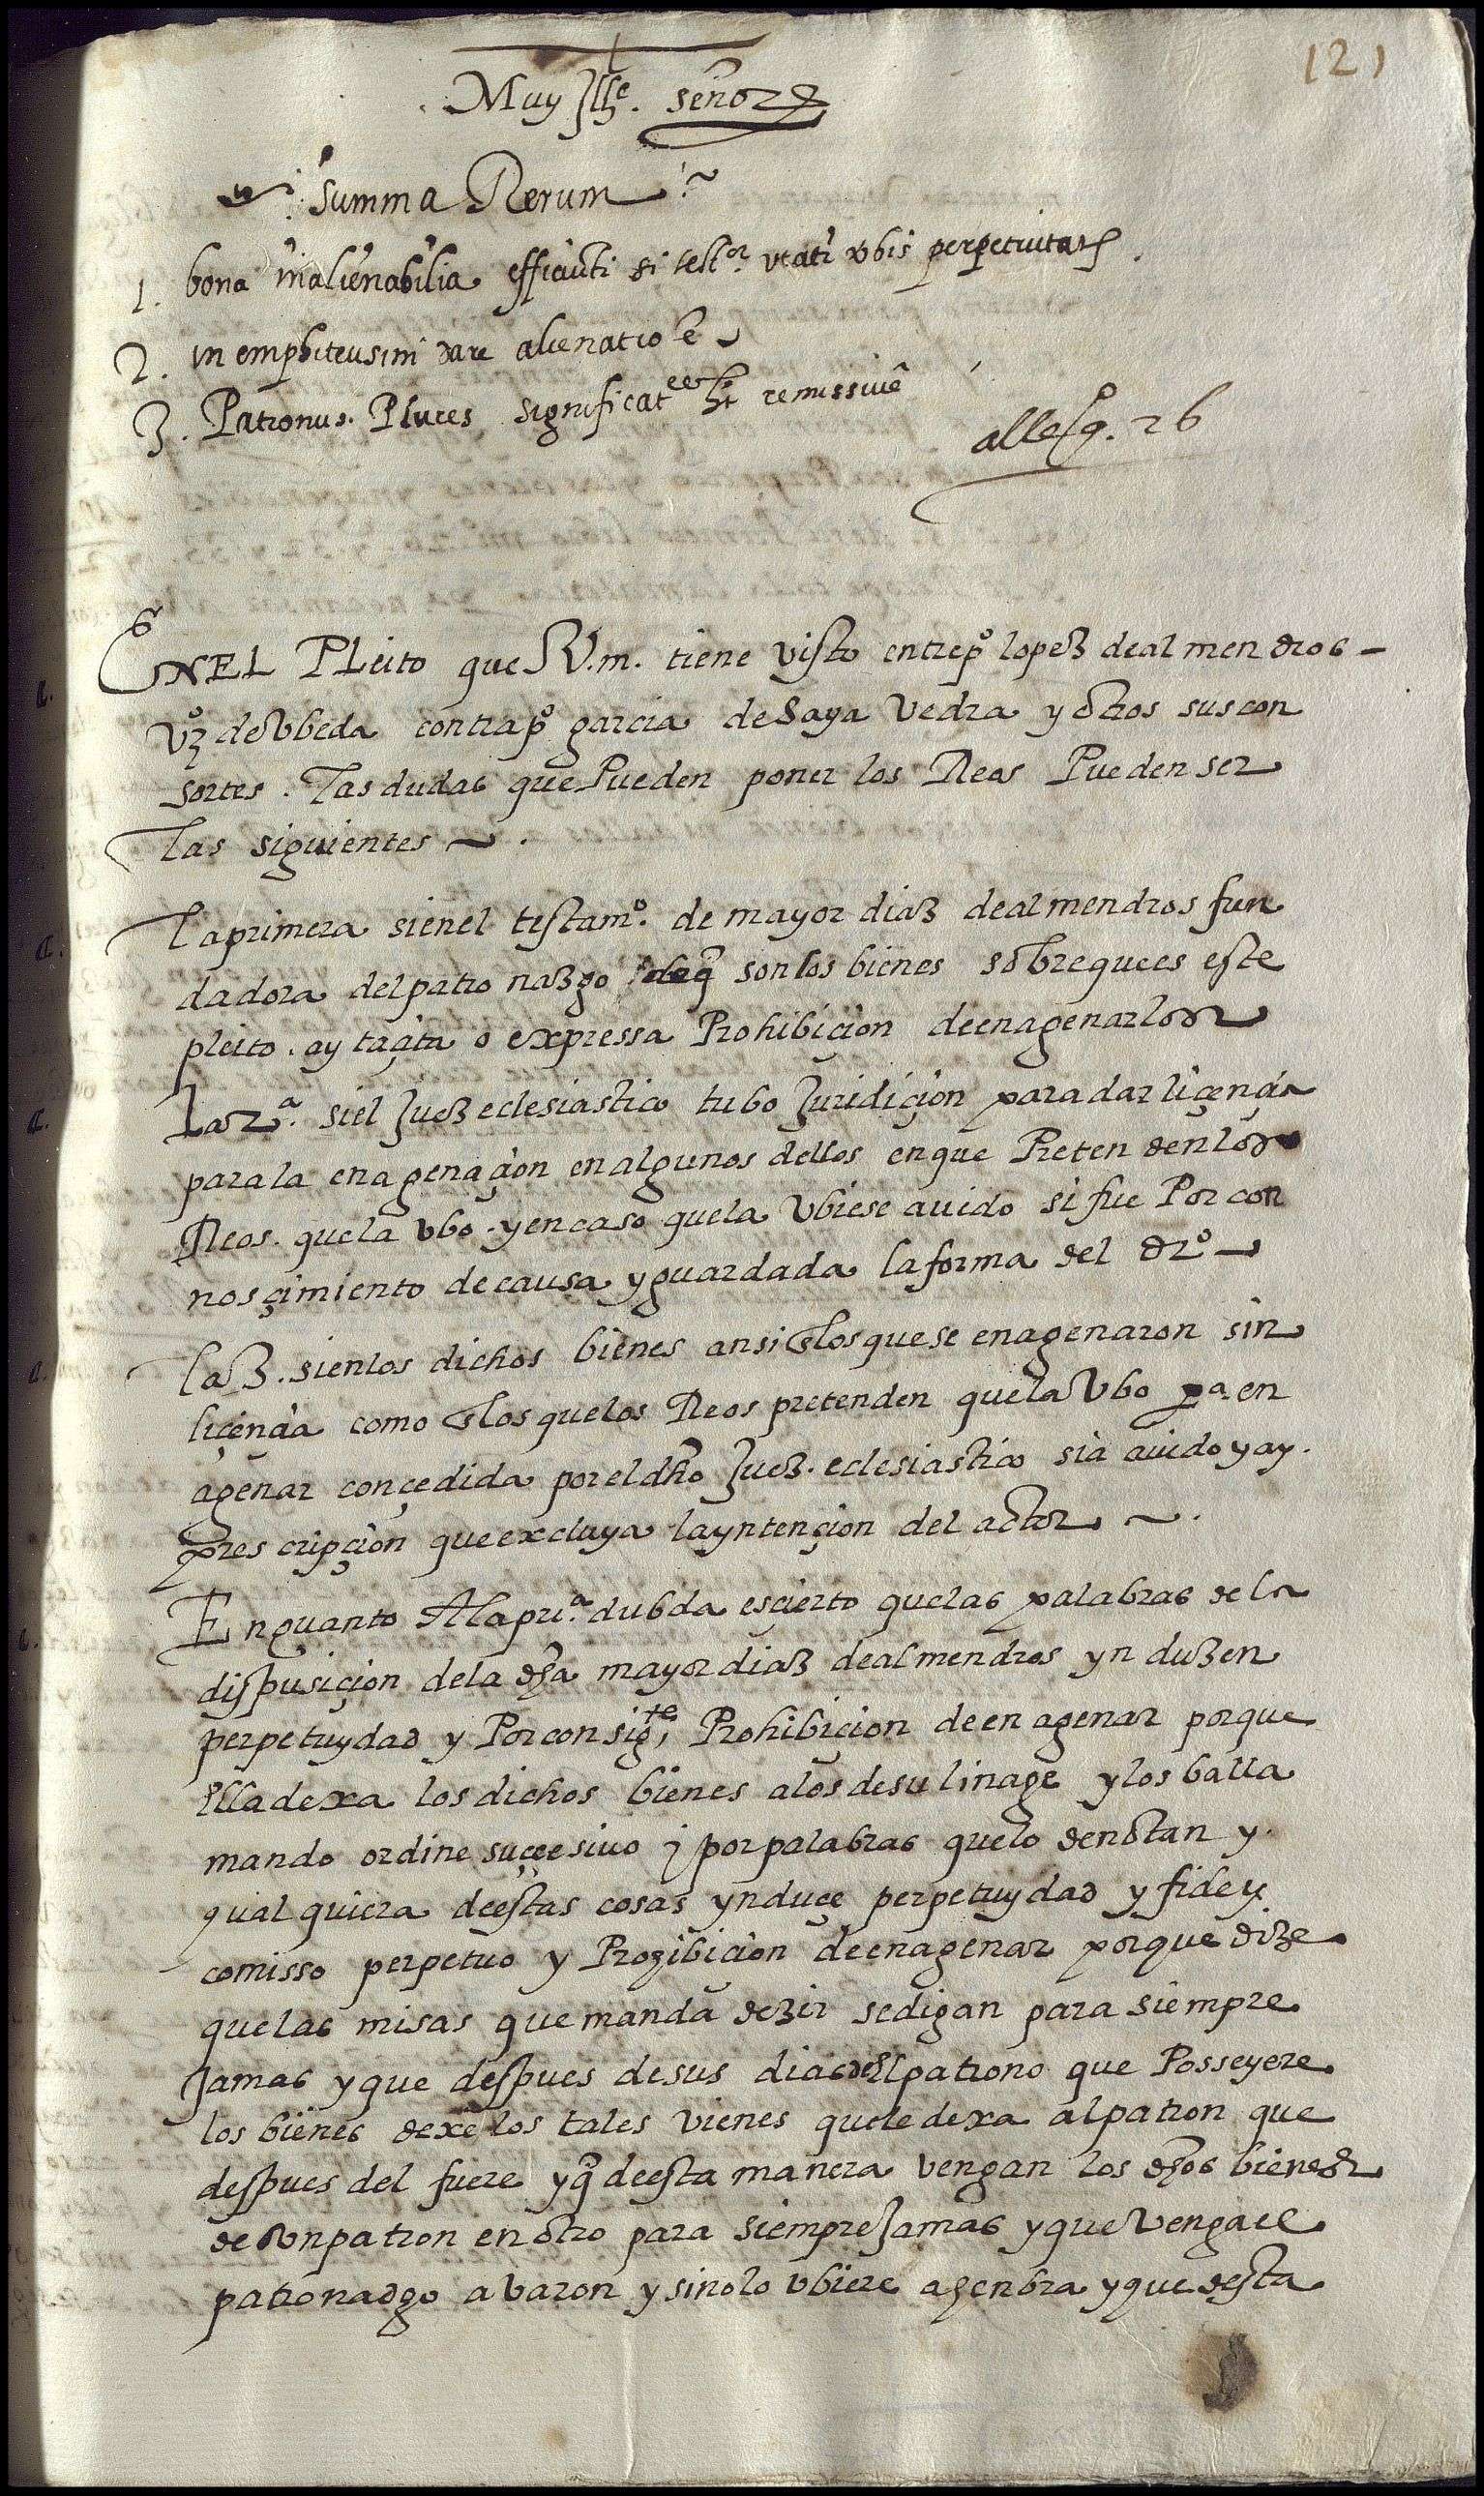 121
Muy Ille. señor
Summa Rerum
1. bona inalienabilia efficiuntr si testor. utatr vbis perpetuitatis.
2. in emphiteusim dare alienatio e
3. Patronus. Plures significat remissiue
alleg. 26
EN EL PLeito que V.m. tiene visto entre po lopez de almendros
vo de Vbeda contra po garcia de Saya Vedra y otros sus con
sortes. las dudas que Pueden poner los Reos Pueden ser
las siguientes.
la primera si en el testamo. de mayor diaz de almendros fun
dadora del patronazgo son los bienes sobre que es este
pleito. ay taçita o expressa Prohibiçion de enagenarlos
La 2.a si el Juez eclesiastico tubo Juridiçion para dar liçençia
para la enagenaçion en algunos dellos en que Pretenden los
Reos. que la vbo. y en caso que la Vbiese auido si fue Por con
nosçimiento de causa y guardada la forma del dro
la 3. si en los dichos bienes ansi los que se enagenaron sin
liçençia como los que los Reos pretenden que la Vbo pa en
agenar conçedida por el dho Juez. eclesiastico si a auido y ay.
prescripçion que excluya la yntençion del actor.
En quanto A la pra. dubda es cierto que las palabras de la
dispusiçion de la dha mayor diaz de almendros ynduzen
perpetuydad y Por consigte, Prohibicion de enagenar porque
Ella dexa los dichos bienes a los de su linage y los ba lla
mando ordine suçcesiuo y por palabras que lo denotan y.
qual quiera de estas cosas ynduçe perpetuydad y fidey
comisso perpetuo y Prohibicion de enagenar porque dize
que las misas que manda dezir se digan para siempre
Jamas y que despues de sus dias del patrono que Posseyere
los bienes dexe los tales vienes que le dexa al patron que
despues del fuere y q̃ de esta manera vengan los dhos bienes
de vn patron en otro para siempre Jamas y que Venga el
patronadgo a Varon y si no lo vbiere a henbra y que desta